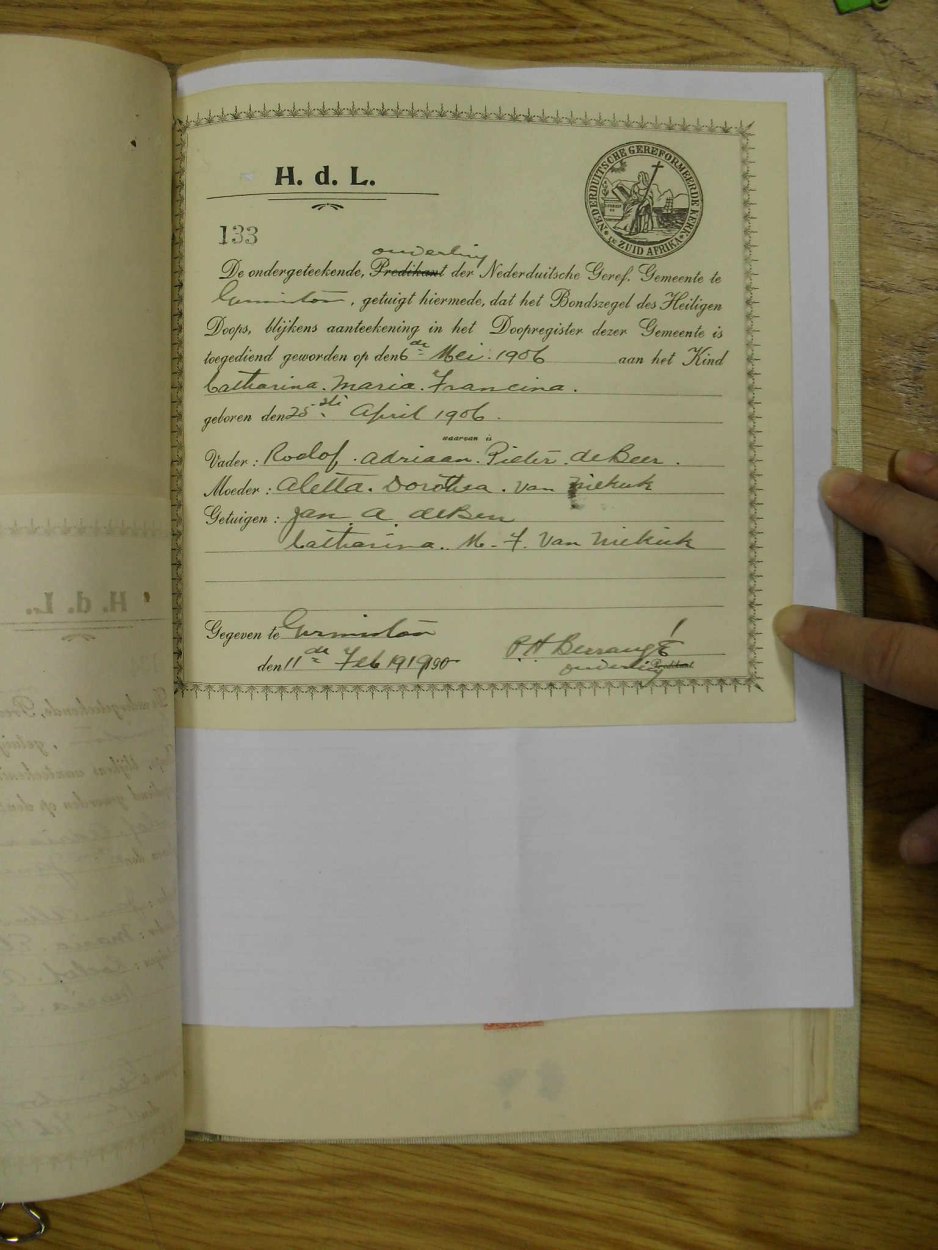 H. d. L.
NEDERDUITSCHE GEREFORMEERDE KERK
IN ZUID AFRIKA
133
ouderling
De ondergeteekende, Predikant der Nederduitsche Geref. Gemeente te
Germiston, getuigt hiermede, dat het Bondszegel des Heiligen
Doops, blijkens aanteekening in het Doopregister dezer Gemeente is
toegediend geworden op den 6de Mei 1906 aan het Kind
Catharina. Maria. Francina.
geboren den 25ste April 1906.
waarvan is
Vader: Roelof. Adriaan. Pieter. de Beer.
Moeder: Aletta. Dorothea. van Niekerk
Getuigen: Jan. A. de Beer
Catharina. M. F. Van Niekerk
Gegeven te Germiston
den 11de Feb 1919 190
P. H. Berrangé
ouderling Predikant
H. d. L.